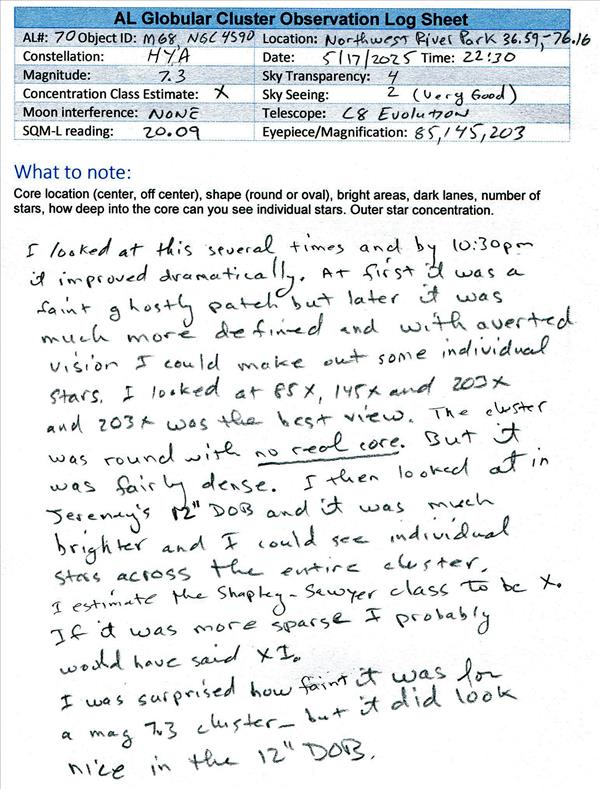 AL Globular Cluster Observation Log Sheet
AL#: 70 Object ID: M68 NGC 4590 Location: Northwest River Park 36.59,-76.16
Constellation: HYA Date: 5/17/2025 Time: 22:30
Magnitude: 7.3 Sky Transparency: 4
Concentration Class Estimate: X Sky Seeing: 2 (Very Good)
Moon interference: NONE Telescope: C8 Evolution
SQM-L reading: 20.09 Eyepiece/Magnification: 85,145,203
What to note:
Core location (center, off center), shape (round or oval), bright areas, dark lanes, number of
stars, how deep into the core can you see individual stars. Outer star concentration.
I looked at this several times and by 10:30pm
it improved dramatically. At first it was a
faint ghostly patch but later it was
much more defined and with averted
vision I could make out some individual
stars. I looked at 85x, 145x and 203x
and 203x was the best view. The cluster
was round with no real core. But it
was fairly dense. I then looked at in
Jeremy's 12" DOB and it was much
brighter and I could see individual
stars across the entire cluster.
I estimate the Shapley-Sawyer class to be X.
If it was more sparse I probably
would have said XI.
I was surprised how faint it was for
a mag 7.3 cluster - but it did look
nice in the 12" DOB.